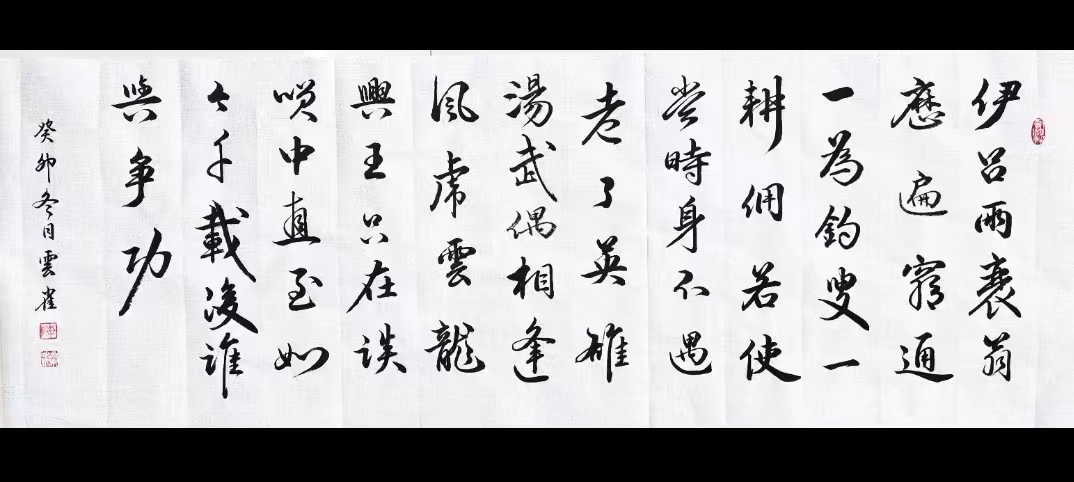 伊呂兩衰翁
歷遍窮通
一為釣叟一
耕佣若使
當時身不遇
老了英雄
湯武偶相逢
風虎雲龍
興王只在談
笑中直至如
今千載後誰
與爭功
癸卯冬月雲雀